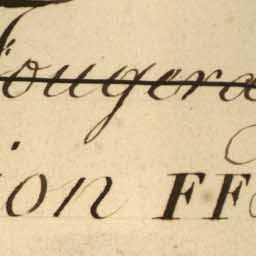 Fougera
ion FF